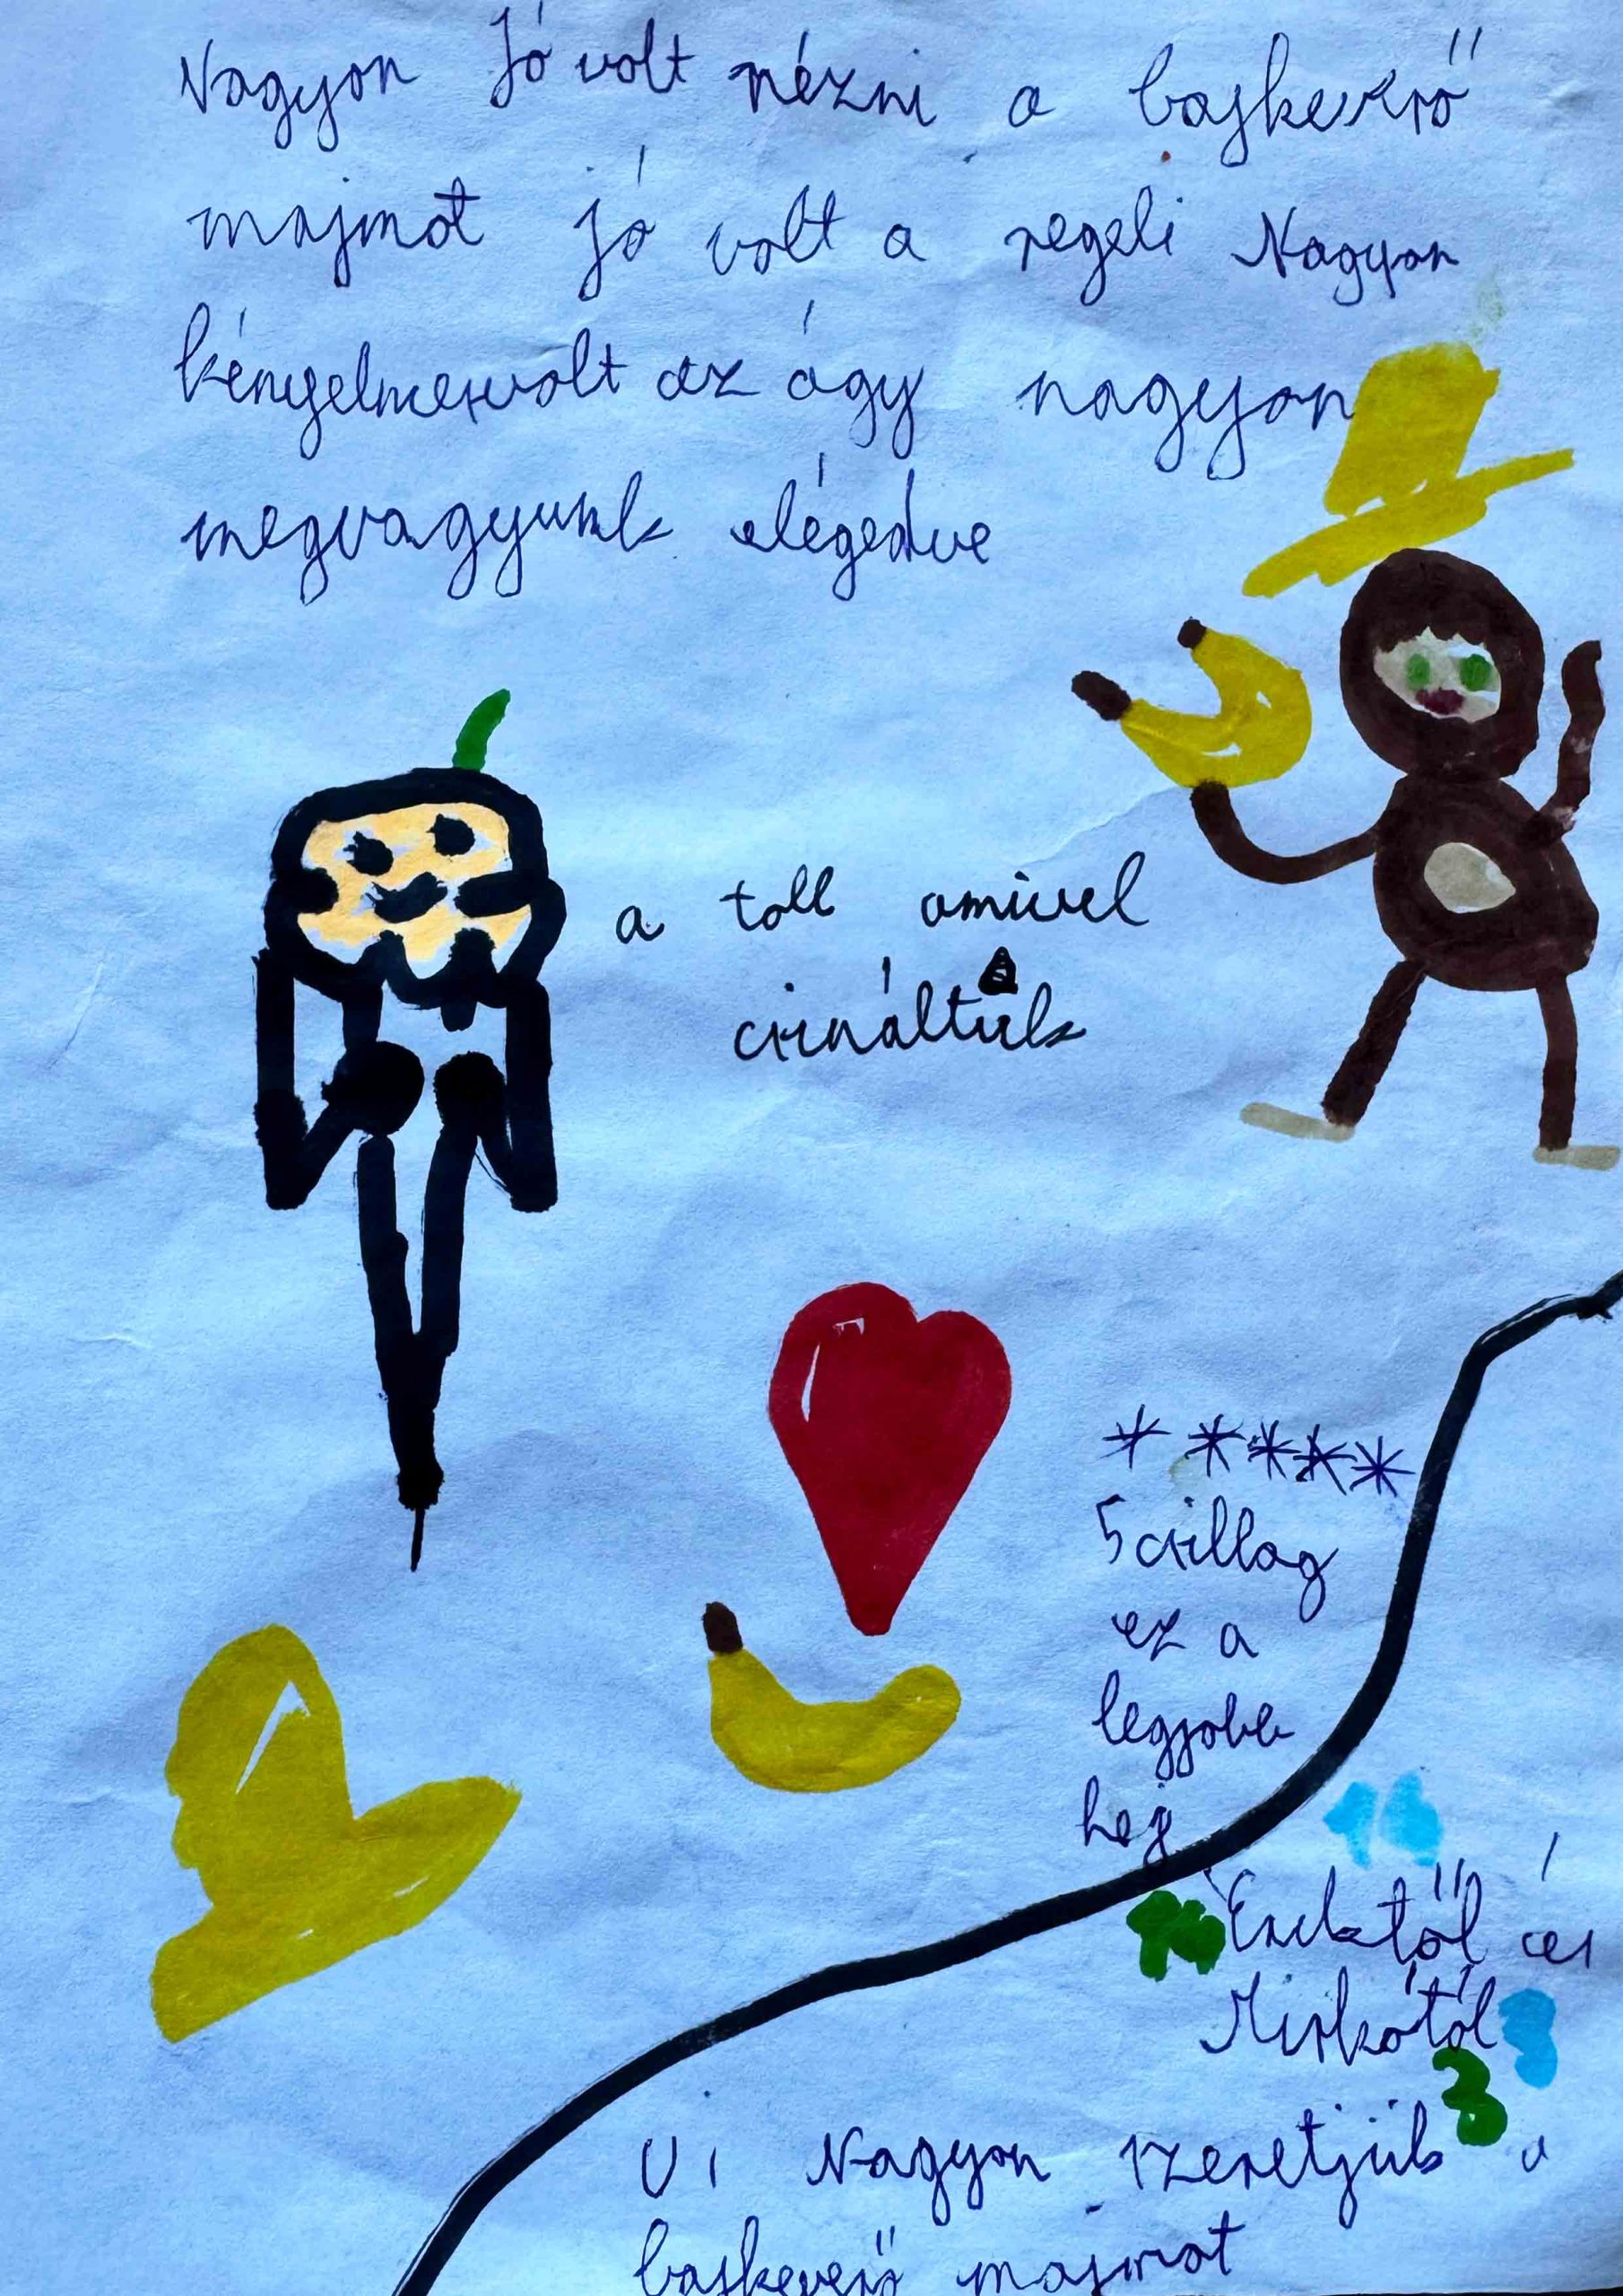 Nagyon Jó volt nézni a bajkeverő
majmot jó volt a regeli Nagyon
kényelmesvolt az ágy nagyon
megvagyunk elégedve
a toll amivel
csináltuk
*****
5csillag
ez a
legjobb
hej
Enektől és
Mirkótól
Ui Nagyon szeretjük a
bajkeverő majmot